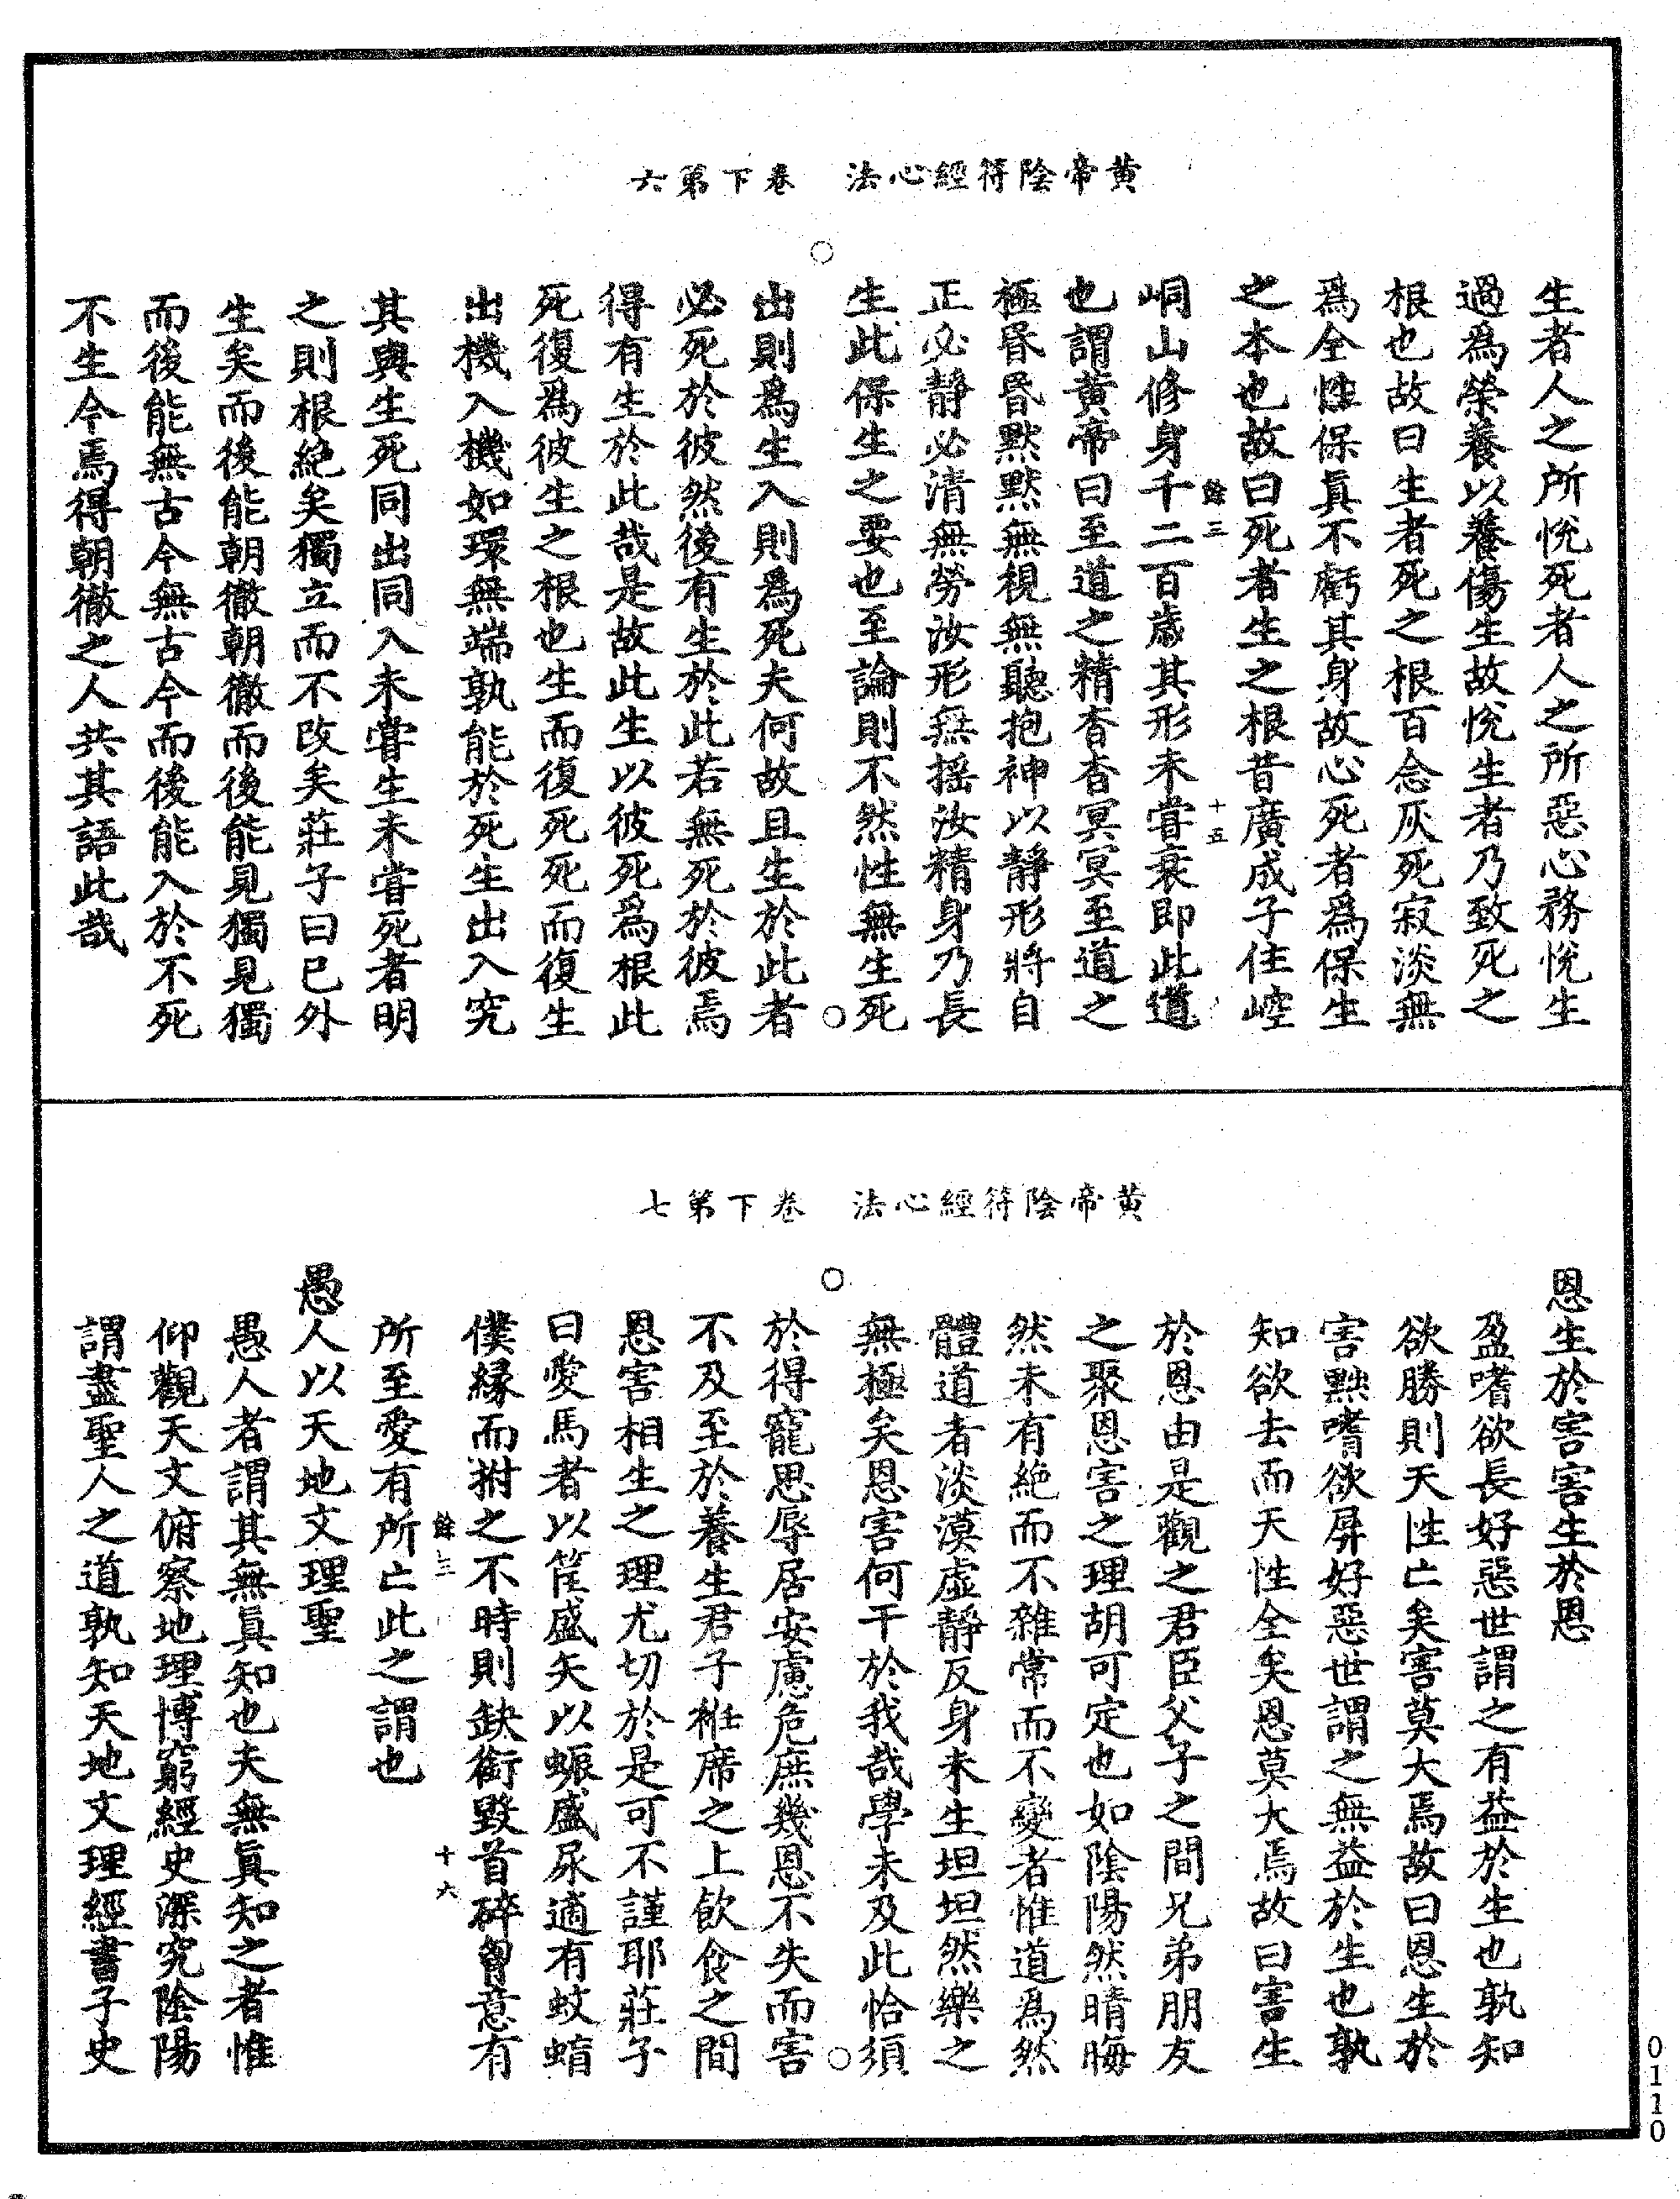 黄帝陰符經心法　卷下第六
生者人之所悅死者人之所惡心務悅生
過爲榮養以養傷生故悅生者乃致死之
根也故曰生者死之根百念灰死寂淡無
爲全性保眞不虧其身故心死者爲保生
之本也故曰死者生之根昔廣成子住崆
餘三
十五
峒山修身千二百歲其形未嘗衰即此道
也謂黄帝曰至道之精杳杳冥冥至道之
極昬昬默默無視無聽抱神以靜形將自
正必靜必清無勞汝形無摇汝精身乃長
生此保生之要也至論則不然性無生死
出則爲生入則爲死夫何故且生於此者
必死於彼然後有生於此若無死於彼焉
得有生於此哉是故此生以彼死爲根此
死復爲彼生之根也生而復死死而復生
出機入機如環無端孰能於死生出入究
其與生死同出同入未嘗生未嘗死者明
之則根絶矣獨立而不改矣莊子曰已外
生矣而後能朝徹朝徹而後能見獨見獨
而後能無古今無古今而後能入於不死
不生今焉得朝徹之人共其語此哉
黄帝陰符經心法　卷下第七
恩生於害害生於恩
盈嗜欲長好惡世謂之有益於生也孰知
欲勝則天性亡矣害莫大焉故曰恩生於
害黜嗜欲屏好惡世謂之無益於生也孰
知欲去而天性全矣恩莫大焉故曰害生
於恩由是觀之君臣父子之間兄弟朋友
之聚恩害之理胡可定也如陰陽然晴晦
然未有絶而不雜常而不變者惟道爲然
體道者淡漠虛靜反身未生坦坦然樂之
無極矣恩害何干於我哉學未及此恰須
於得寵思辱居安慮危庶幾恩不失而害
不及至於養生君子袵席之上飲食之間
恩害相生之理尤切於是可不謹耶莊子
曰愛馬者以筐盛矢以蜄盛尿適有蚊蝱
僕緣而拊之不時則缺銜毀首碎胷意有
餘三
十六
所至愛有所亡此之謂也
愚人以天地文理聖
愚人者謂其無眞知也夫無眞知之者惟
仰觀天文俯察地理博窮經史深究陰陽
謂盡聖人之道孰知天地文理經書子史
0110